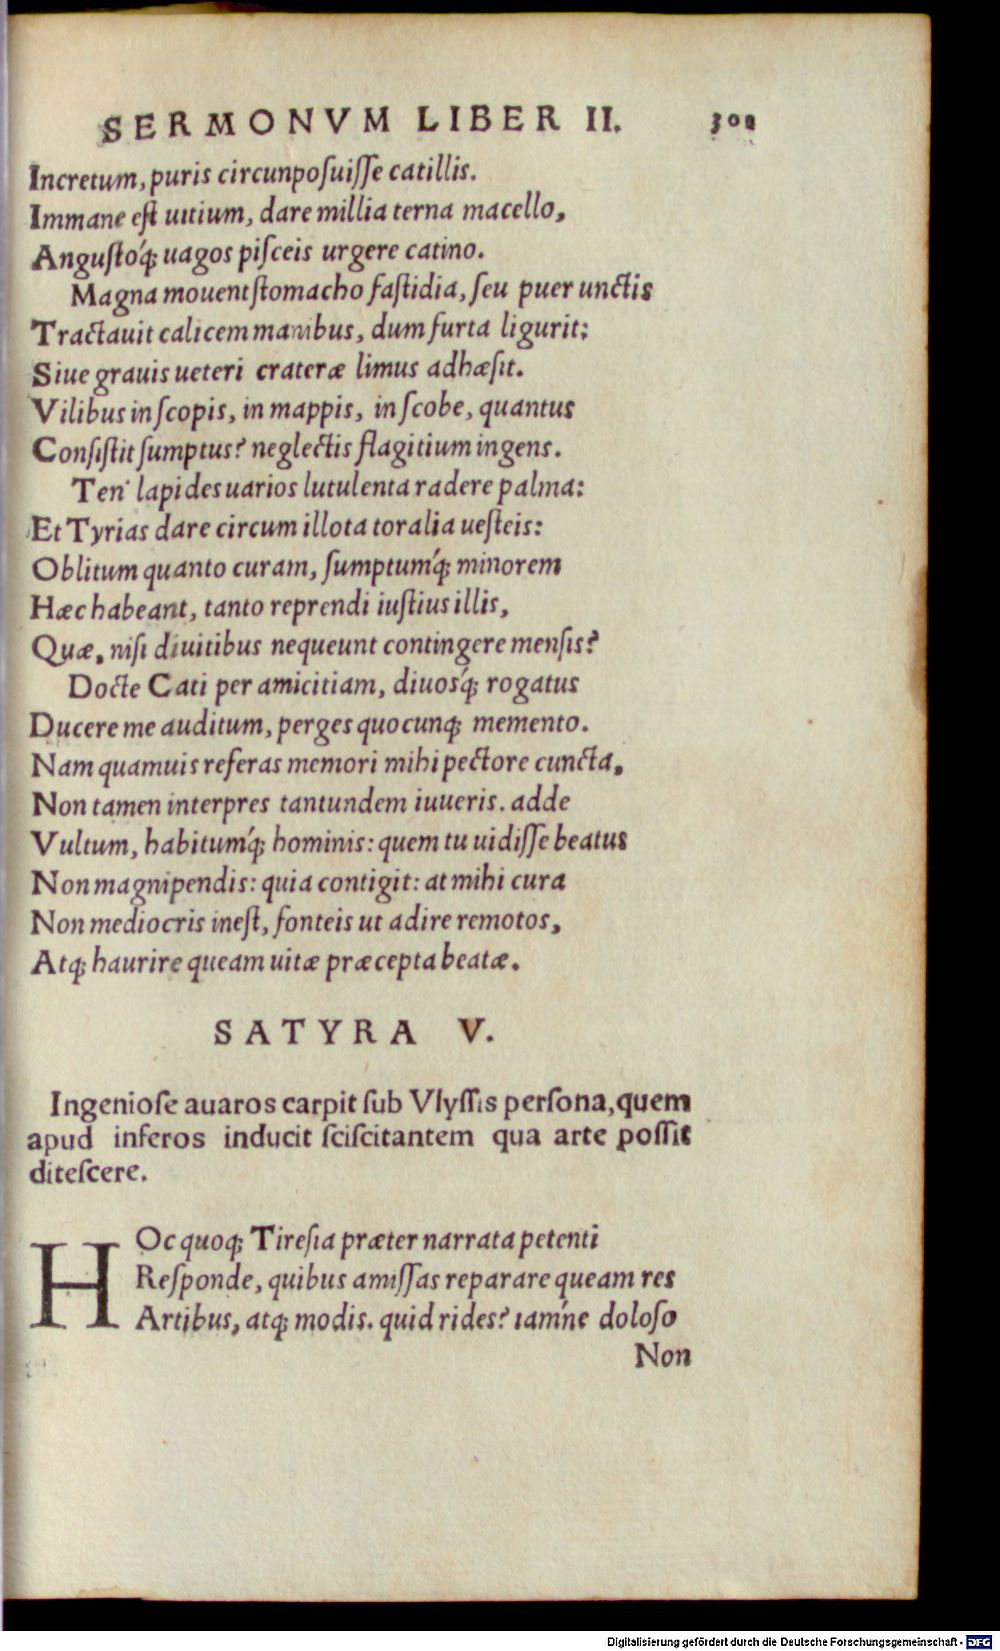 SERMONVM LIBER II. 302
Incretum, puris circunposuisse catillis.
Immane est uitium, dare millia terna macello,
Angustóq; uagos pisceis urgere catino.
Magna mouent stomacho fastidia, seu puer unctis
Tractauit calicem manibus, dum furta ligurit:
Siue grauis ueteri crateræ limus adhæsit.
Vilibus in scopis, in mappis, in scobe, quantus
Consistit sumptus? neglectis flagitium ingens.
Ten' lapides uarios lutulenta radere palma:
Et Tyrias dare circum illota toralia uesteis:
Oblitum quanto curam, sumptumq́; minorem
Hæc habeant, tanto reprendi iustius illis,
Quæ, nisi diuitibus nequeunt contingere mensis?
Docte Cati per amicitiam, diuosq́; rogatus
Ducere me auditum, perges quocunq; memento.
Nam quamuis referas memori mihi pectore cuncta,
Non tamen interpres tantundem iuueris. adde
Vultum, habitumq́; hominis: quem tu uidisse beatus
Non magni pendis: quia contigit: at mihi cura
Non mediocris inest, fonteis ut adire remotos,
Atq; haurire queam uitæ præcepta beatæ.
SATYRA V.
Ingeniose auaros carpit sub Vlyssis persona, quem
apud inferos inducit sciscitantem qua arte possit
ditescere.
HOc quoq; Tiresia præter narrata petenti
Responde, quibus amissas reparare queam res
Artibus, atq; modis. quid rides? iamńe doloso
Non
Digitalisierung gefördert durch die Deutsche Forschungsgemeinschaft - DFG